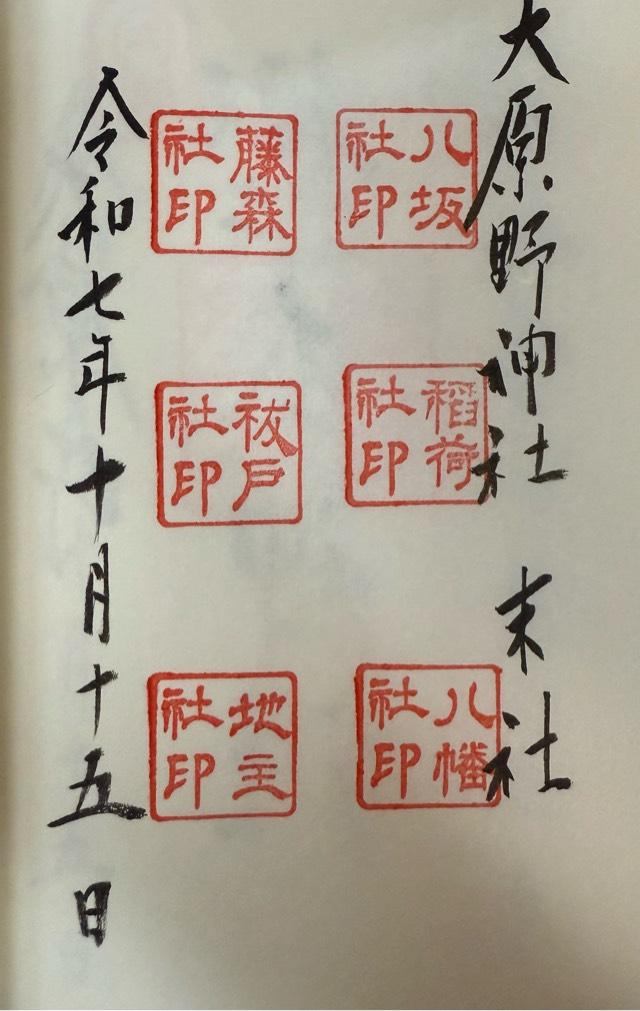 大原野神社 末社
八坂社印
稻荷社印
八幡社印
藤森社印
祓戸社印
地主社印
令和七年十月十五日